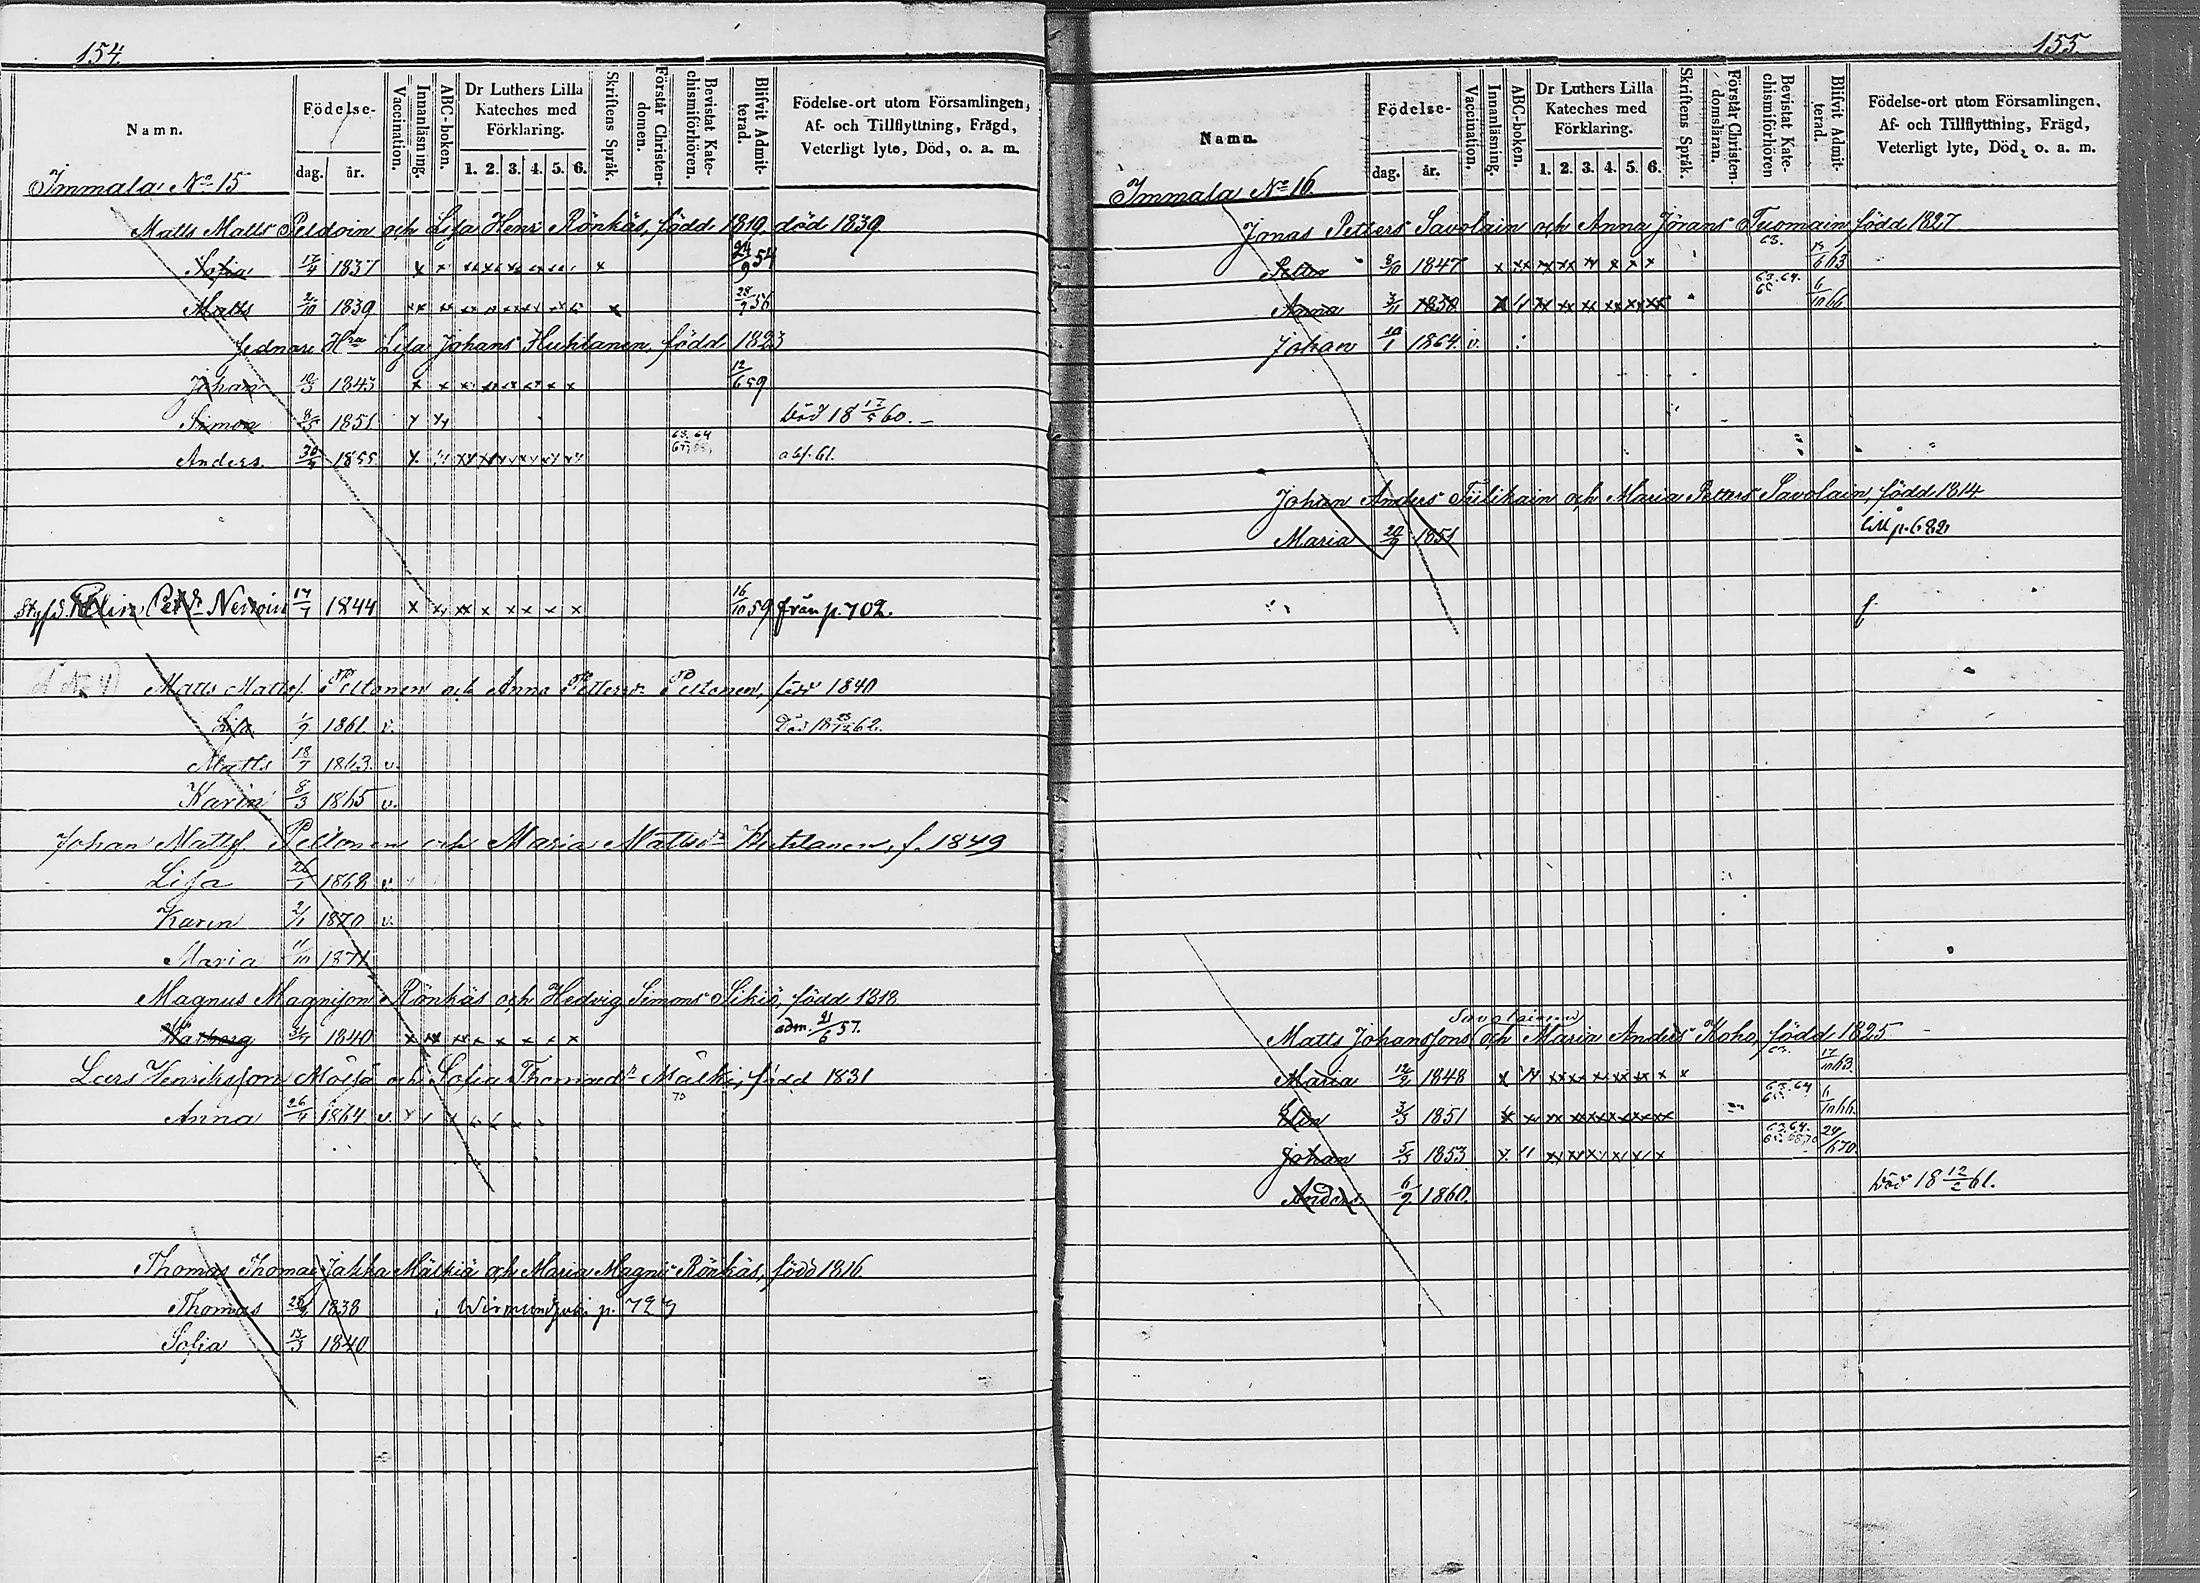 154.
Namn.
Födelse-
dag.
år.
Vaccination.
Innanläsning.
ABC-boken.
Dr Luthers Lilla Kateches med Förklaring.
1. 2. 3. 4. 5. 6.
Skriftens Språk.
Förstår Christendomen.
Bevistat Katechismiförhören.
Blifvit Admitterad.
Födelse-ort utom Församlingen, Af- och Tillflyttning, Frägd, Veterligt lyte, Död, o. a. m.
Immala No 15
Matts Matts Peldoin och Lisa Henr Rönkäs, född 1819 död 1839
Sofia 17/4 1837 24/9 54
Matts 2/10 1839 28/9 56
sednare Hru Lisa Johans Huhtanen, född 1823
Johan 10/3 1843 12/6 59
Simon 8/5 1851 död 18 17/5 60.
Anders 30/4 1855 63. 64 abf. 61.
Styfd. Elin Petdr Neuvoin 17/7 1844 16/10 59 från p. 702.
Matts Mattsf. Peltonen och Anna Pettersdr Peltonen, född 1840
Lisa 1/9 1861. v. Död 18 62.
Matts 18/7 1863. v.
Karin 8/3 1865 v.
Johan Mattsf Peltonen och Maria Mattsdr Huhtanen, f. 1849
Lisa 26/1 1868 v.
Karin 2/1 1870 v.
Maria 11/10 1871
Magnus Magnison Rönkäs och Hedvig Simons Sikiö, född 1818
Warborg 31/7 1840 adm. 21/6 57.
Lars Henriksson och Sofia Thomasdr Mälkiä, född 1831
Anna 26/4 1864 v. 70
Thomas Thomas Jakka Mälkiä och Maria Magnis Rönkäs, född 1816.
Thomas 28/9 1838 i p. 729
Sofia 13/3 1840
155.
Namn.
Födelse-
dag.
år.
Vaccination.
Innanläsning.
ABC-boken.
Dr Luthers Lilla Kateches med Förklaring.
1. 2. 3. 4. 5. 6.
Skriftens Språk.
Förstår Christendomsläran.
Bevistat Katechismiförhören
Blifvit Admitterad.
Födelse-ort utom Församlingen, Af- och Tillflyttning, Frägd, Veterligt lyte, Död, o. a. m.
Immala No 16.
Jonas Petters Savolain och Anna Jörans Tuomain född 1827
Petter 8/10 1847 63. 63
Anna 3/11 1850 63. 64. 65 6/10 66
Johan 10/1 1864. v.
Johan Anders Tiilikain och Maria Petters Savolain, född 1814
Maria 20/9 1851 till p. 682
Savolainen
Matts Johanssons och Maria Anders Koho, född 1825
Maria 12/2 1848 63. 17/10 63.
Elin 3/3 1851 63. 64 65. 6/10 66.
Johan 5/3 1853 63. 64. 65. 68. 70 24/6 70.
Anders 6/9 1860. död 18 12/2 61.